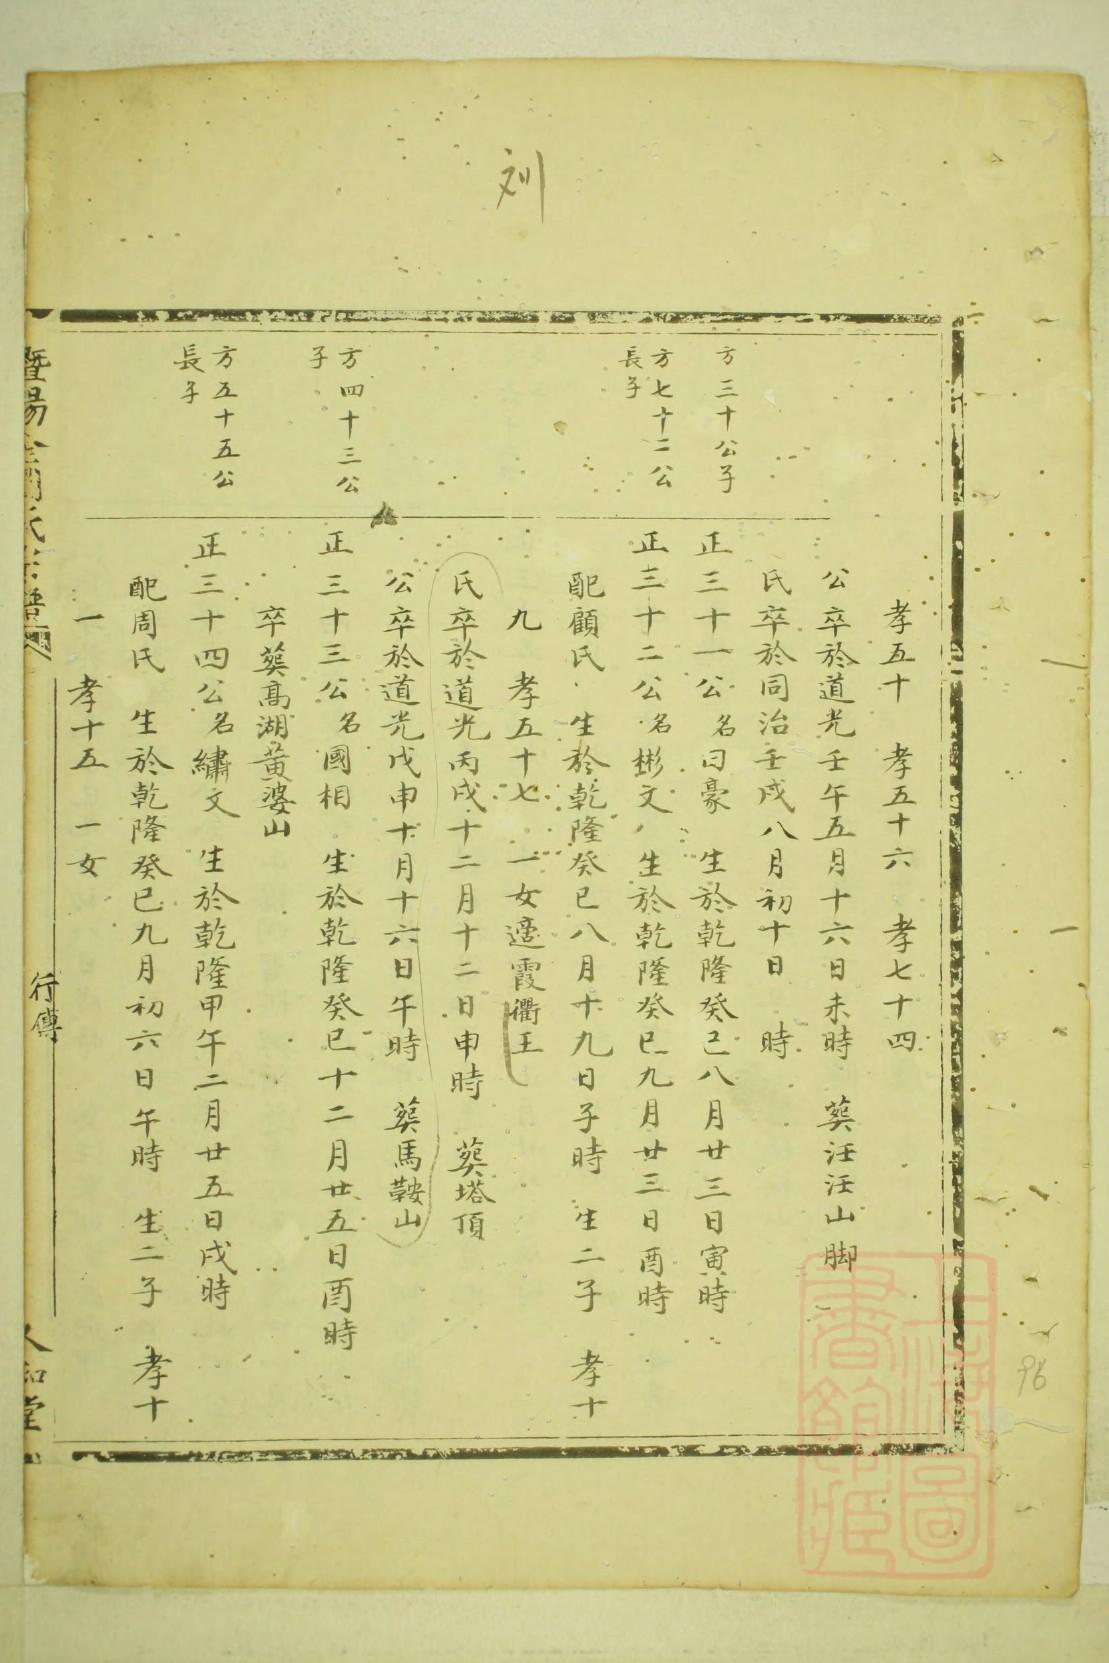 刘
孝五十 孝五十六 孝七十四
公卒於道光壬午五月十六日未時 葬汪汪山脚
氏卒於同治壬戌八月初十日 時
方三十公子
正三十一公名曰豪 生於乾隆癸巳八月廿三日寅時
方七十二公
長子
正三十二公名彬文 生於乾隆癸巳九月廿三日酉時
配顧氏 生於乾隆癸巳八月十九日子時 生二子 孝十
九 孝五十七 一女適霞衢王
氏卒於道光丙戌十二月十二日申時 葬塔頂
公卒於道光戊申十月十六日午時 葬馬鞍山
方四十三公
子
正三十三公名國相 生於乾隆癸巳十二月廿五日酉時
卒葬高湖黃婆山
方五十五公
長子
正三十四公名繡文 生於乾隆甲午二月廿五日戌時
配周氏 生於乾隆癸巳九月初六日午時 生二子 孝十
一 孝十五 一女
行傳
人和堂
96
上海圖
書館藏